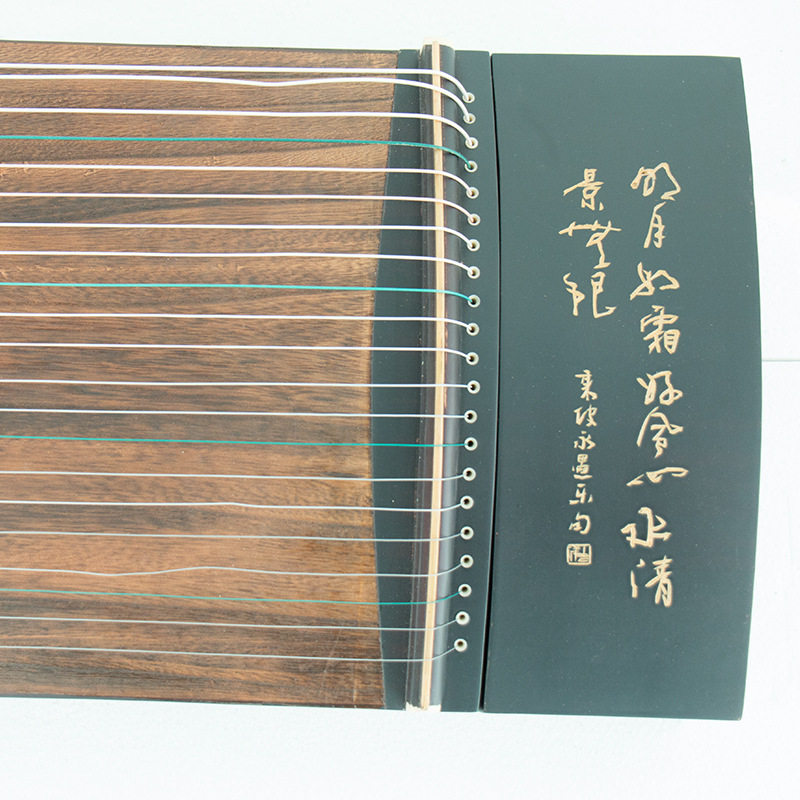 明月如霜好风如水清
景無限
東坡永遇乐句